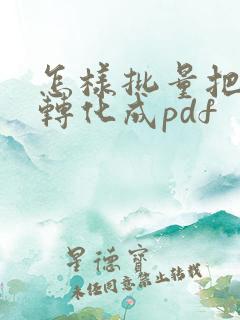 怎樣批量把
轉化成pdf
星德寶
未经同意禁止转载